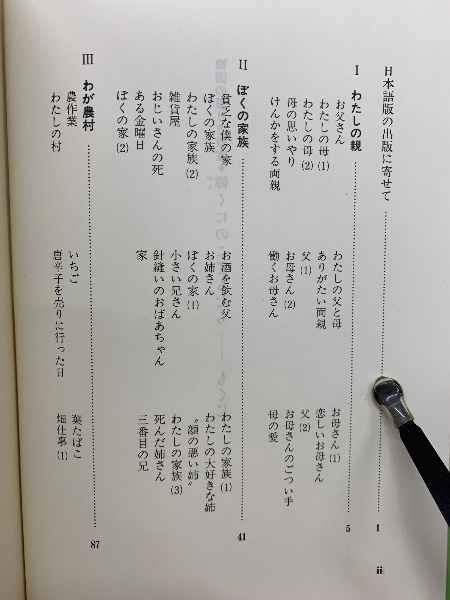 日本語版の出版に寄せて 1
I わたしの親 5
お父さん わたしの父と母 お母さん(1)
わたしの母(1) ありがたい両親 恋しいお母さん
わたしの母(2) 父(1) 父(2)
母の思いやり お母さん(2) お母さんのごつい手
けんかをする両親 働くお母さん 母の愛
II ぼくの家族 41
貧乏な僕の家 お酒を飲む父 わたしの家族(1)
ぼくの家族 お姉さん わたしの大好きな姉
わたしの家族(2) ぼくの家(1) “顔の悪い姉”
雑貨屋 小さい兄さん わたしの家族(3)
おじいさんの死 針縫いのおばあちゃん 死んだ姉さん
ある金曜日 家 三番目の兄
ぼくの家(2)
III わが農村 87
農作業 いちご 葉たばこ
わたしの村 唐辛子を売りに行った日 畑仕事(1)
ii